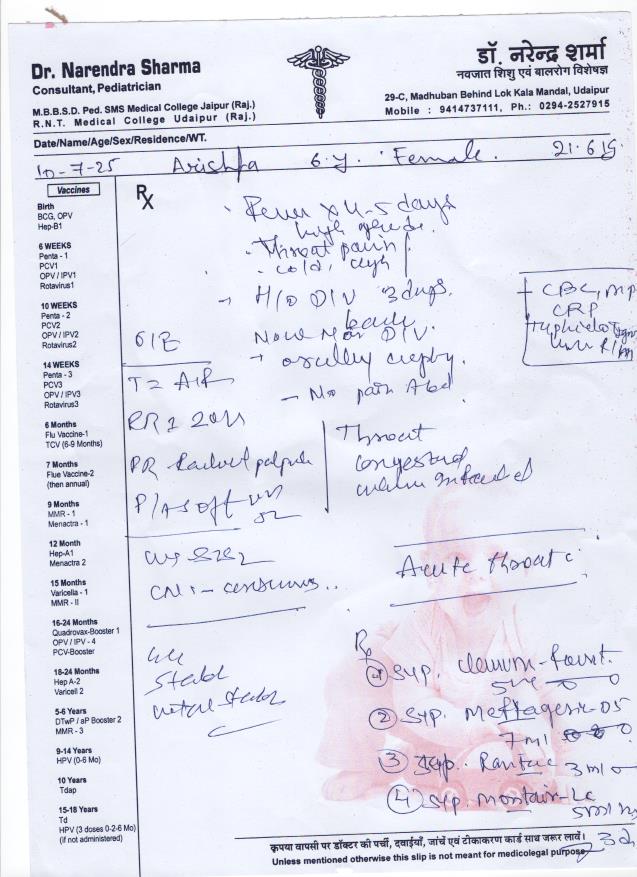 Dr. Narendra Sharma
Consultant, Pediatrician
M.B.B.S.D. Ped. SMS Medical College Jaipur (Raj.)
R.N.T. Medical College Udaipur (Raj.)
डॉ. नरेन्द्र शर्मा
नवजात शिशु एवं बालरोग विशेषज्ञ
29-C, Madhuban Behind Lok Kala Mandal, Udaipur
Mobile : 9414737111, Ph.: 0294-2527915
Date/Name/Age/Sex/Residence/WT.
10-7-25 6 y. Female. 21.6
Vaccines
Birth
BCG, OPV
Hep-B1
6 WEEKS
Penta - 1
PCV1
OPV / IPV1
Rotavirus1
10 WEEKS
Penta - 2
PCV2
OPV / IPV2
Rotavirus2
14 WEEKS
Penta - 3
PCV3
OPV / IPV3
Rotavirus3
6 Months
Flu Vaccine-1
TCV (6-9 Months)
7 Months
Flue Vaccine-2
(then annual)
9 Months
MMR - 1
Menactra - 1
12 Month
Hep-A1
Menactra 2
15 Months
Varicella - 1
MMR - II
16-24 Months
Quadrovax-Booster 1
OPV / IPV - 4
PCV-Booster
18-24 Months
Hep A-2
Varicell 2
5-6 Years
DTwP / aP Booster 2
MMR - 3
9-14 Years
HPV (0-6 Mo)
10 Years
Tdap
15-18 Years
Td
HPV (3 doses 0-2-6 Mo)
(if not administered)
Rx
Fever x 4-5 days
high grade.
Throat pain
cold, cough
H/o D/V 3 days
back.
Now No D/V.
No pain Abd
CBC, MP
CRP
O/E
T = AIR
RR =
P/A soft
Throat
congested
S1S2
CNS - conscious
Acute throat
Stable
Rx
① Syp.
5ml
② Syp. Meftagesic-DS
7ml
③ Syp. Rantac 3ml
④ Syp. Montair-LC
5ml
3d
कृपया वापसी पर डॉक्टर की पर्ची, दवाईयाँ, जांचें एवं टीकाकरण कार्ड साथ जरूर लावें।
Unless mentioned otherwise this slip is not meant for medicolegal purpose